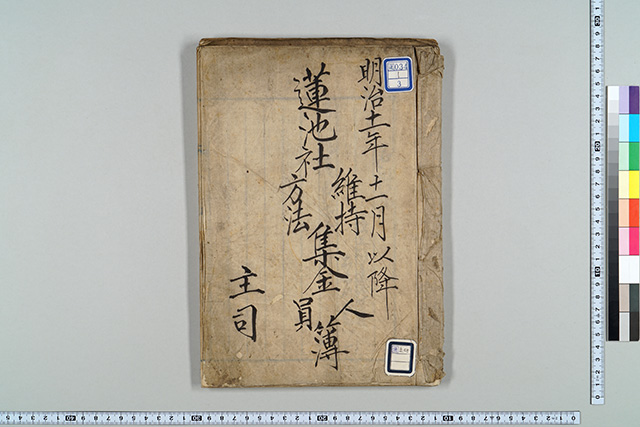 明治十一年十一月以降
蓮池社維持方法集金人員簿
主司
1
3